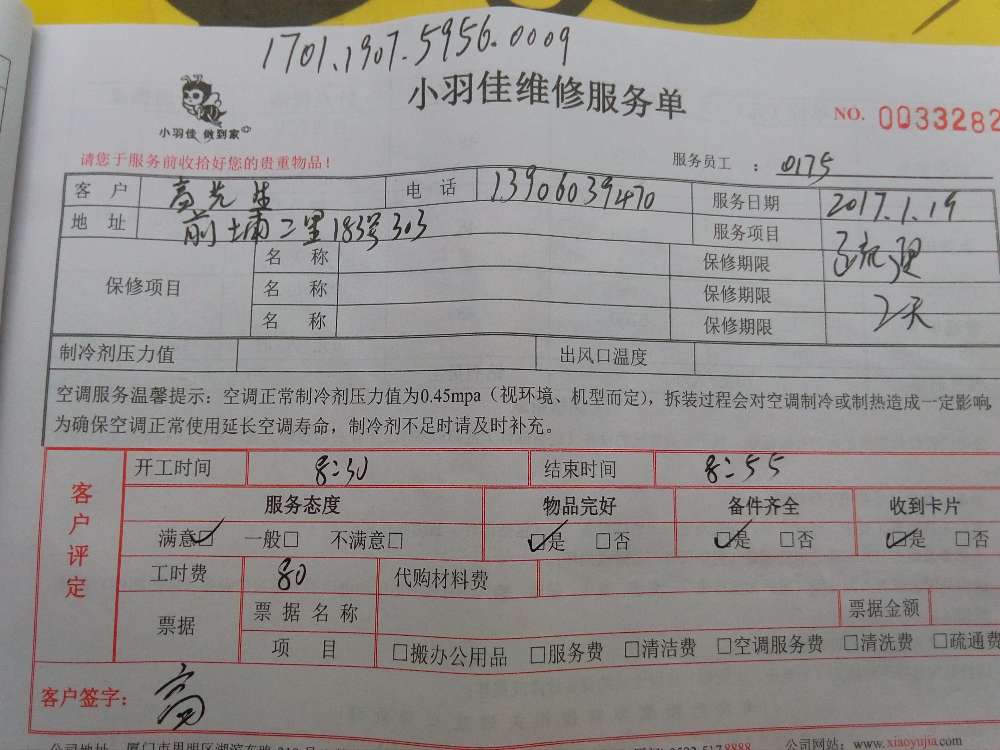 1701.1907.5956.0009
小羽佳 做到家
小羽佳维修服务单
NO. 0033282
请您于服务前收拾好您的贵重物品！
服务员工 ： 0175
客 户 高先生 电 话 13906039470 服务日期 2017.1.19
地 址 前埔二里183号303 服务项目
保修项目 名 称 保修期限
名 称 保修期限 2天
名 称 保修期限
制冷剂压力值 出风口温度
空调服务温馨提示：空调正常制冷剂压力值为0.45mpa（视环境、机型而定），拆装过程会对空调制冷或制热造成一定影响，
为确保空调正常使用延长空调寿命，制冷剂不足时请及时补充。
客户评定
开工时间 8:30 结束时间 8:55
服务态度 物品完好 备件齐全 收到卡片
满意☑ 一般□ 不满意□ ☑是 □否 ☑是 □否 ☑是 □否
工时费 80 代购材料费
票据 票据名称 票据金额
项 目 □搬办公用品 □服务费 □清洁费 □空调服务费 □清洗费 □疏通费
客户签字： 高
公司地址 厦门市思明区湖滨东路 公司网站：www.xiaoyujia.com